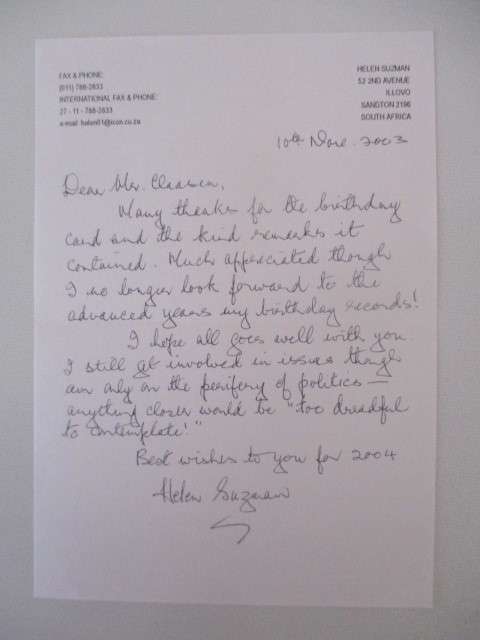 FAX & PHONE:
(011) 788-2833
INTERNATIONAL FAX & PHONE:
27 - 11 - 788-2833
e-mail helen01@icon.co.za
HELEN SUZMAN
52 2ND AVENUE
ILLOVO
SANDTON 2196
SOUTH AFRICA
10th Nov. 2003
Dear Mr. Claassen,
Many thanks for the birthday
card and the kind remarks it
contained. Much appreciated though
I no longer look forward to the
advanced years my birthday records!
I hope all goes well with you.
I still get involved in issues though
am only on the perifery of politics —
anything closer would be "too dreadful
to contemplate!"
Best wishes to you for 2004
Helen Suzman